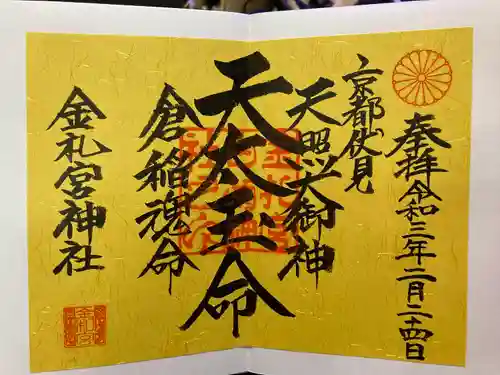 奉拝令和三年二月二十四日
京都伏見
天照大御神
天太玉命
倉稲魂命
金札宮神社